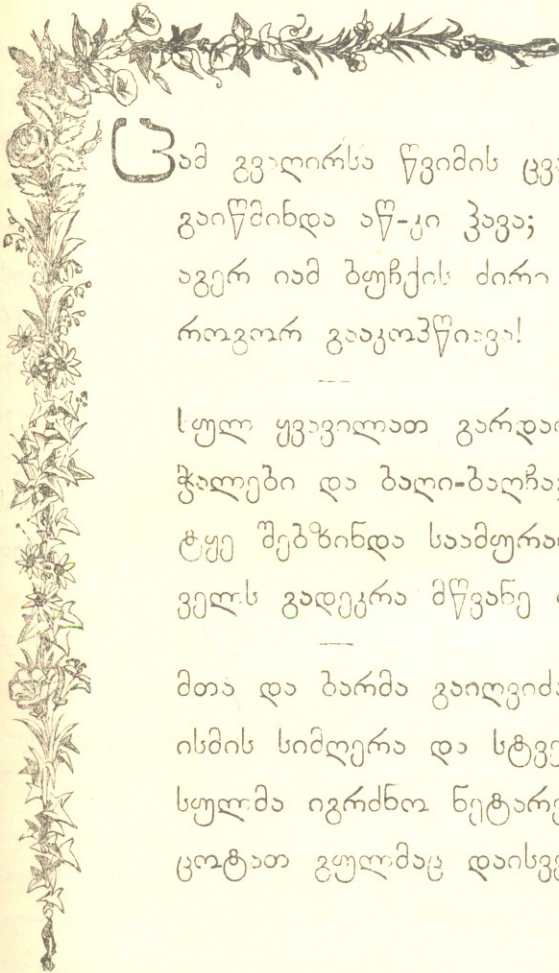 ცამ გვაღირსა წვიმის ცვა
გაიწმინდა აწ-კი ჰავა;
აგერ იამ ბუჩქის ძირი
როგორ გააკოპწიავა!
სულ ყვავილათ გარდაი
ჭალები და ბაღი-ბაღჩა;
ტყე შებზინდა საამურა
ველს გადეკრა მწვანე
მთა და ბარმა გაიღვიძა
ისმის სიმღერა და სტვე
სულმა იგრძნო ნეტარე
ცოტათ გულმაც დაისვე